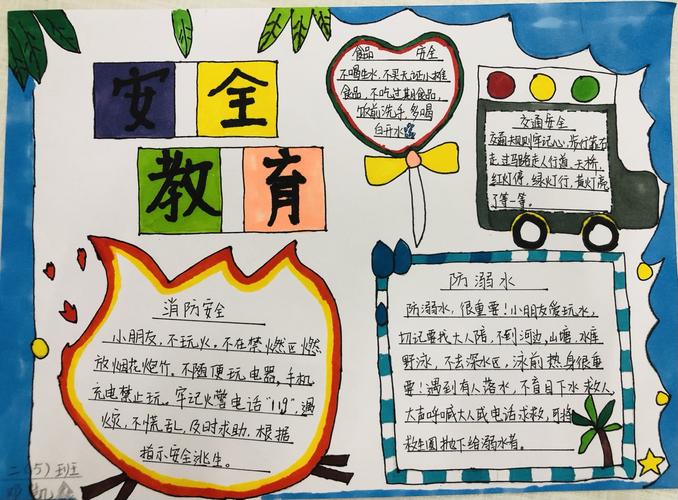 安全
教育
食品 安全
不喝生水,不买无证小摊
食品,不吃过期食品,
饭前洗手,多喝
白开水
交通安全
交通规则牢记心,步行靠右
走过马路走人行道、天桥,
红灯停,绿灯行,黄灯亮
了等一等。
消防安全
小朋友,不玩火。不在禁燃区燃
放烟花炮竹。不随便玩电器,手机
充电禁止玩。牢记火警电话“119”,遇
火灾,不慌乱,及时求助,根据
指示安全逃生。
防溺水
防溺水,很重要!小朋友爱玩水,
切记要找大人陪,不到河边,山塘,水库
野泳,不去深水区;泳前热身很重
要!遇到有人落水,不盲目下水救人,
大声呼喊大人或电话求救,可将
救生圈抛下给溺水者。
二(5)班